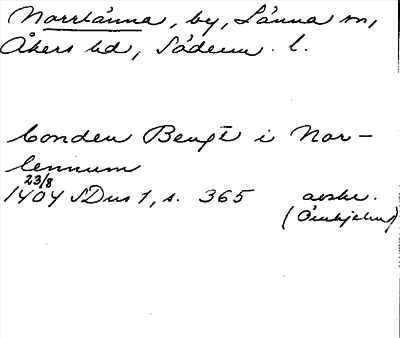 Norrlänna, by, Länna sn,
Åkers hd, Söderm. l.
bonden Bengt i Nor-
lennum
23/8
1404 SDns 1, s. 365 avskr.
(Örnhjelm)